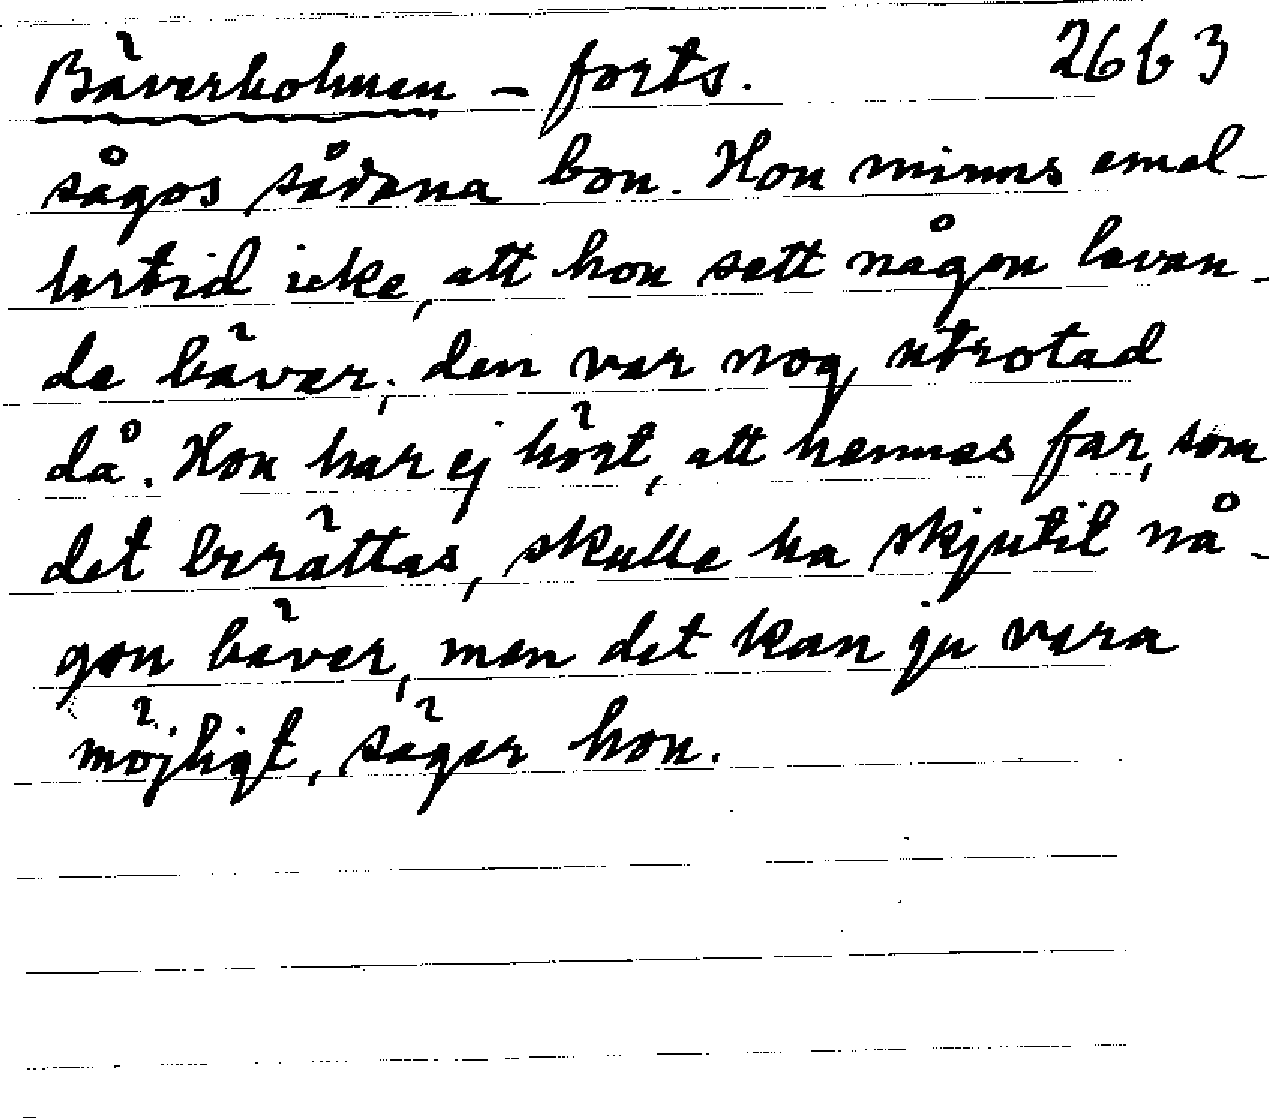 Bäverholmen - forts. 2663
sågos sådana bon. Hon minns emel-
lertid icke, att hon sett någon levan-
de bäver; den var nog utrotad
då. Hon har ej hört, att hennes far, som
det berättas, skulle ha skjutit nå-
gon bäver, men det kan ju vara
möjligt, säger hon.